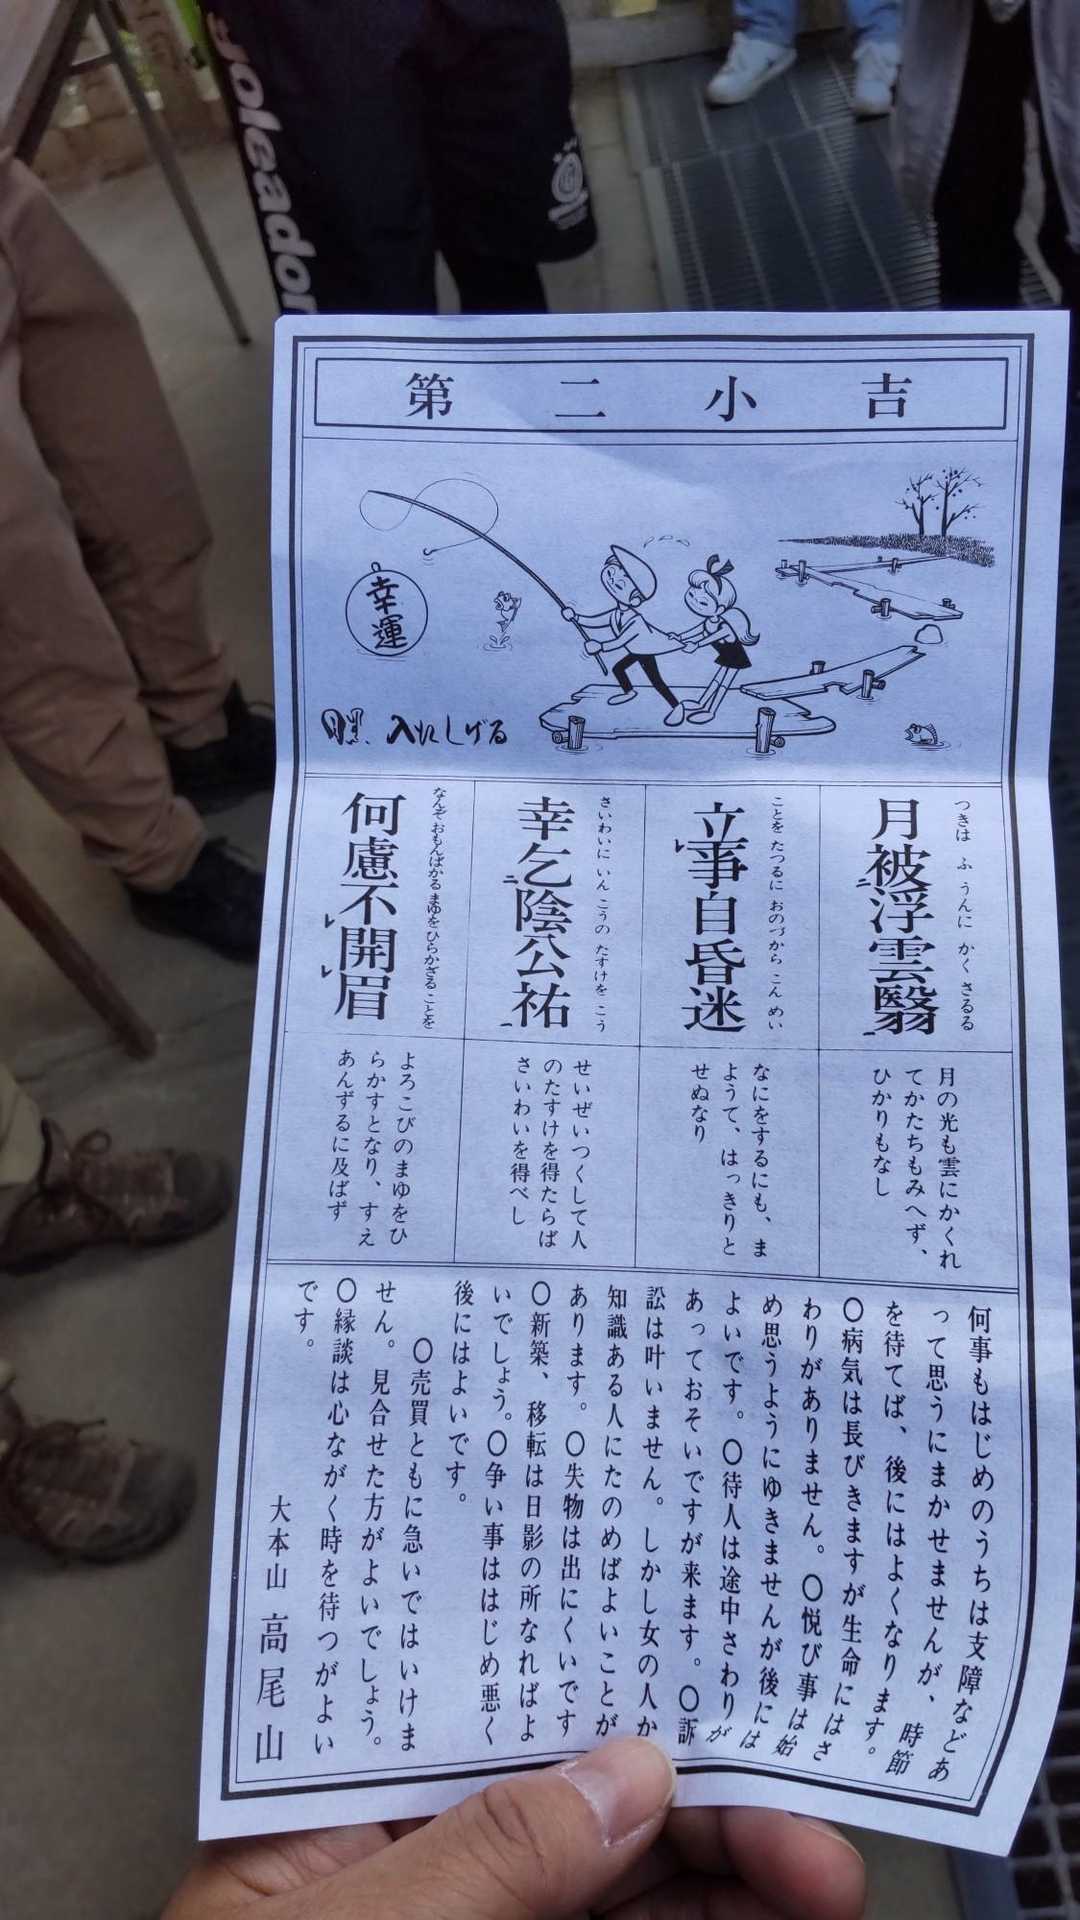 foleador
第二小吉
幸運
入れしげる
つきは ふ うんに かく さるる
月被二浮雲翳一
月の光も雲にかくれ
てかたちもみへず、
ひかりもなし
ことを たつるに おのづから こん めい
立レ事自昏迷
なにをするにも、ま
ようて、はっきりと
せぬなり
さいわいに いん こうの たすけを こう
幸乞二陰公祐一
せいぜいつくして人
のたすけを得たらば
さいわいを得べし
なんぞ おもんぱかる まゆを ひらかざる ことを
何慮不レ開レ眉
よろこびのまゆをひ
らかすとなり、すえ
あんずるに及ばず
何事もはじめのうちは支障などあ
って思うにまかせませんが、時節
を待てば、後にはよくなります。
〇病気は長びきますが生命にはさ
わりがありません。〇悦び事は始
め思うようにゆきませんが後には
よいです。〇待人は途中さわりが
あっておそいですが来ます。〇訴
訟は叶いません。しかし女の人か
知識ある人にたのめばよいことが
あります。〇失物は出にくいです
〇新築、移転は日影の所なればよ
いでしょう。〇争い事ははじめ悪く
後にはよいです。
〇売買ともに急いではいけま
せん。見合せた方がよいでしょう。
〇縁談は心ながく時を待つがよい
です。
大本山 高尾山